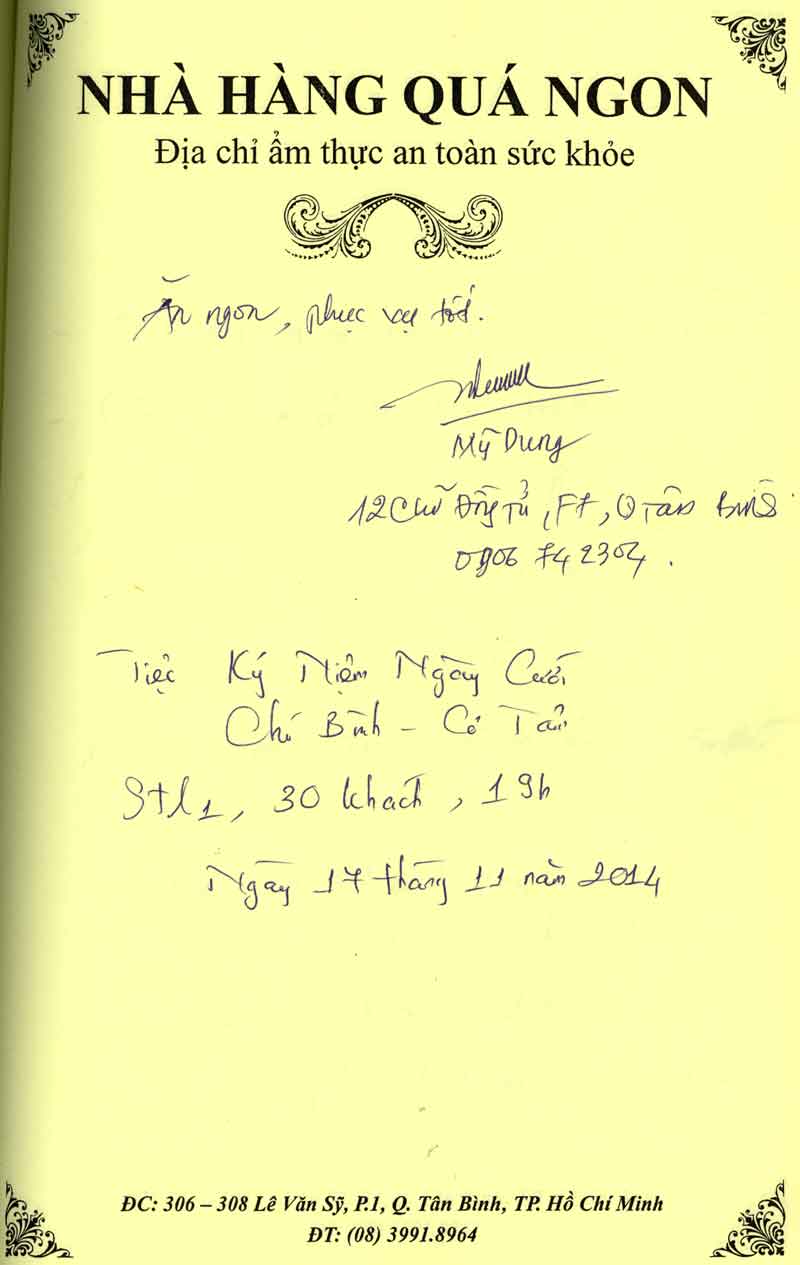 NHÀ HÀNG QUÁ NGON
Địa chỉ ẩm thực an toàn sức khỏe
Ăn ngon, phục vụ tốt.
Mỹ Dung
12 Chử Đồng Tử, F7, Q Tân
0906 742304.
Tiệc Kỷ Niệm Ngày Cưới
Chí Bình - Cô
30 khách, 19h
Ngày 17 tháng 11 năm 2014
ĐC: 306 – 308 Lê Văn Sỹ, P.1, Q. Tân Bình, TP. Hồ Chí Minh
ĐT: (08) 3991.8964